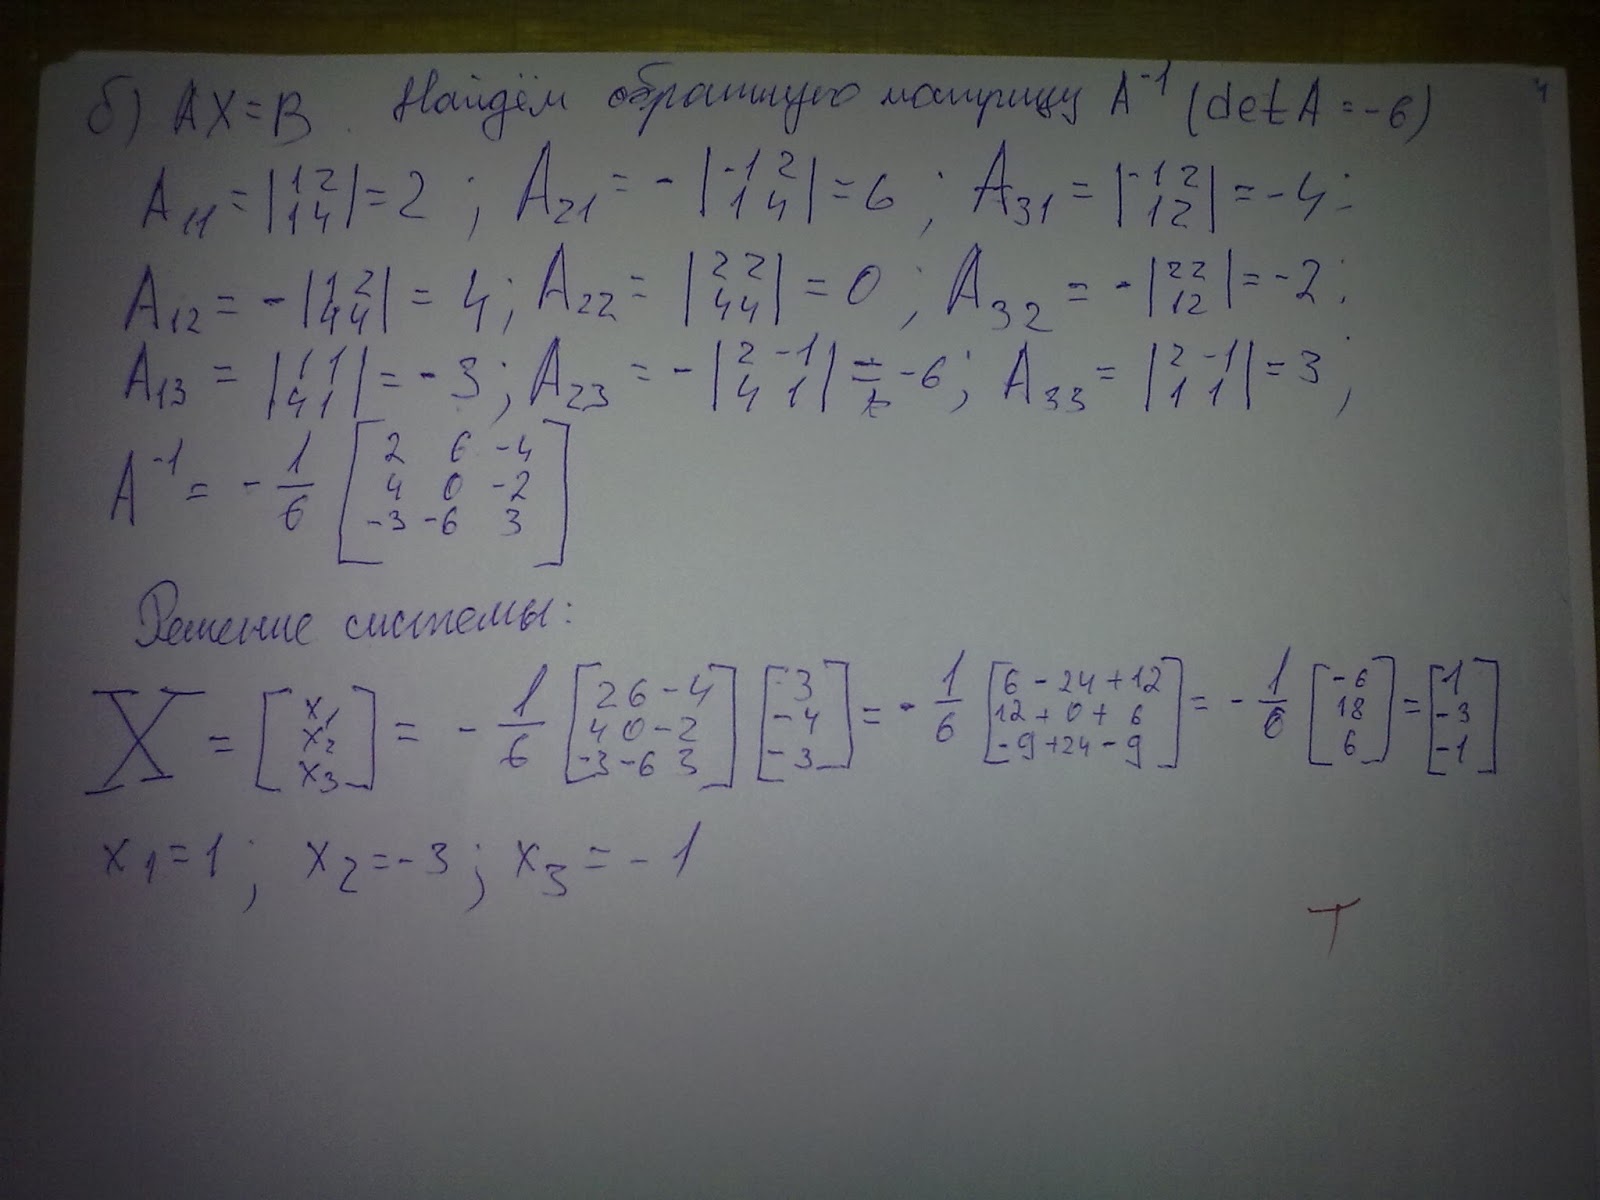 б) AX=B. Найдём обратную матрицу A⁻¹ (det A = -6)
A₁₁ = |1 2; 1 4| = 2 ; A₂₁ = - |-1 2; 1 4| = 6 ; A₃₁ = |-1 2; 1 2| = -4 ;
A₁₂ = - |1 2; 4 4| = 4 ; A₂₂ = |2 2; 4 4| = 0 ; A₃₂ = - |2 2; 1 2| = -2 ;
A₁₃ = |1 1; 4 1| = -3 ; A₂₃ = - |2 -1; 4 1| = -6 ; A₃₃ = |2 -1; 1 1| = 3 ;
A⁻¹ = - 1/6 [2 6 -4; 4 0 -2; -3 -6 3]
Решение системы:
X = [x₁; x₂; x₃] = - 1/6 [2 6 -4; 4 0 -2; -3 -6 3] [3; -4; -3] = - 1/6 [6 - 24 + 12; 12 + 0 + 6; -9 + 24 - 9] = - 1/6 [-6; 18; 6] = [1; -3; -1]
x₁ = 1 ; x₂ = -3 ; x₃ = -1